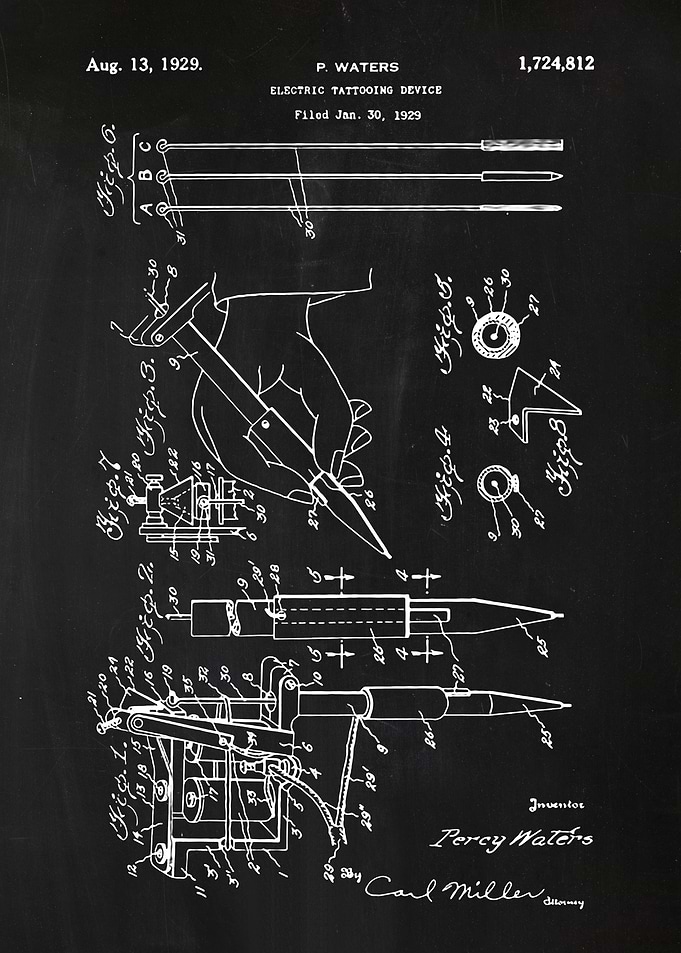 Aug. 13, 1929.
P. WATERS
1,724,812
ELECTRIC TATTOOING DEVICE
Filed Jan. 30, 1929
Fig. 6.
C
B
A
31
30
30
8
7
9
Fig. 3.
27
26
Fig. 5.
9
26
30
27
22
23
24
Fig 8
Fig. 4.
9
30
27
Fig. 7
21
20
22
16
17
2
30
6
15
19
31
Fig. 2.
30
9
29'
28
5
4
5
4
26
27
25
Fig. 1.
21
20
24
22
16
19
35
32
30
8
7
10
15
18
13
14
12
11
17
34
6
4
33
5
3
3'
3'
2
1
9
26
25
29'
29"
29
Inventor
Percy Waters
By
Carl Miller
Attorney